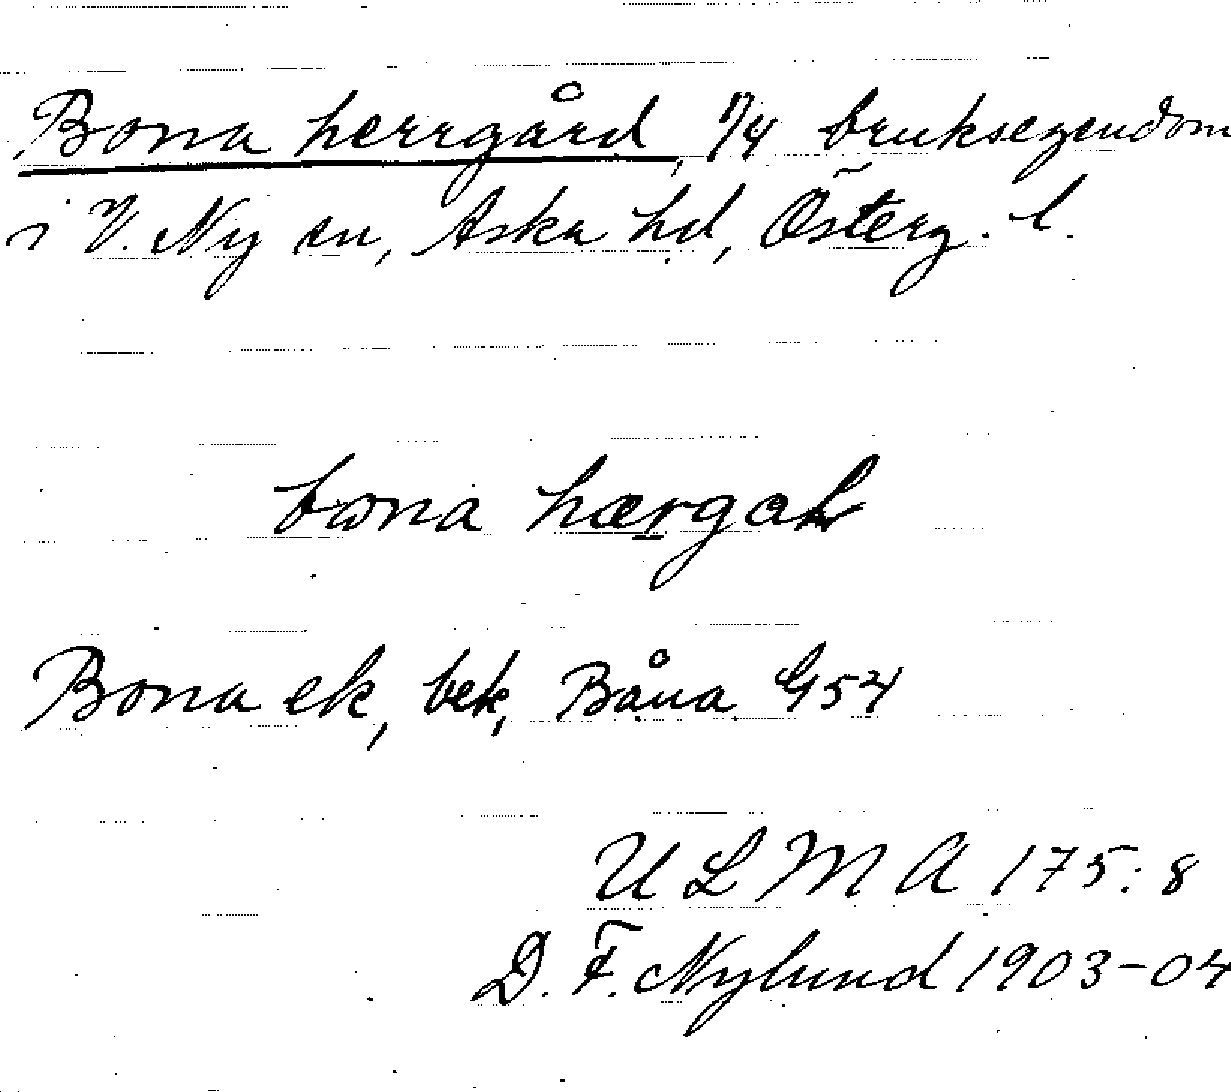 Bona herrgård, 1/4 bruksegendom
i V. Ny sn, Aska hd, Österg. l.
bona hærgaɬ
Bona ek, bek, Båna G54
ULMA 175:8
D. F. Nylund 1903-04